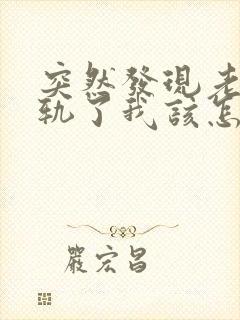 突然發現老
軌了我該怎
嚴宏昌